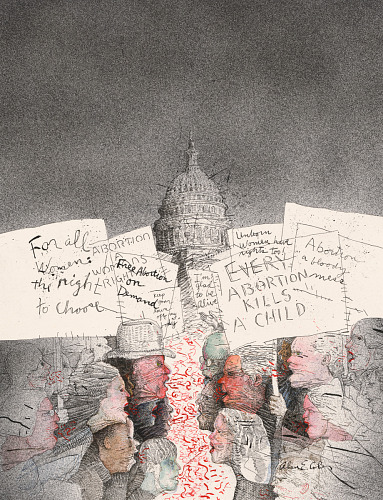 For all
Women:
the right
to choose
ABORTION
A
WOMANS
RIGHT
Free Abortion
on
Demand
I'm
glad
to be
alive
Unborn
Women have
rights too!
EVERY
ABORTION
KILLS
A CHILD
Abortion
a bloody
mess